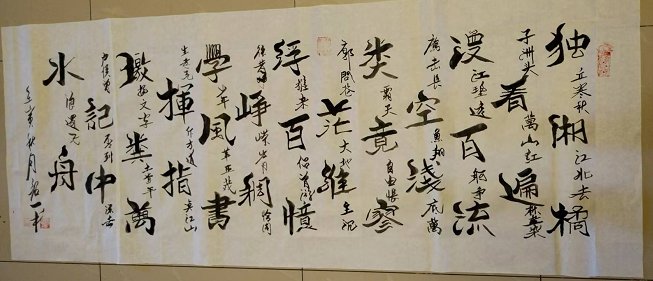 独立寒秋湘江北去橘
子洲头看萬山红遍层林尽染
漫江碧透百舸争流
鹰击長空魚翔浅底萬
类霜天竞自由悵寥
廓問苍茫大地誰主沉
浮携来百侣曾游憶
往昔峥嵘岁月稠恰同
學少年風华正茂書
生意气揮斥方遒指点江山
激扬文字粪土当年萬
户侯曾記否到中流击
水浪遏飞舟
壬寅秋月